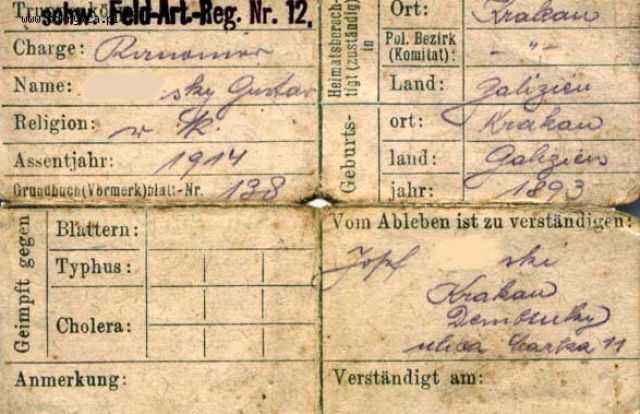 schw. Feld-Art.-Reg. Nr. 12,
Charge: Kanonier
Name: sky Gustav
Religion: r. k.
Assentjahr: 1914
Grundbuch(Vormerk)blatt-Nr. 138
Heimatsberech-
tigt (zuständig)
in
Ort: Krakau
Pol. Bezirk
(Komitat): - " -
Land: Galizien
Geburts-
ort: Krakau
land: Galizien
jahr: 1893
Geimpft gegen
Blattern:
Typhus:
Cholera:
Anmerkung:
Vom Ableben ist zu verständigen:
ski
Krakau
ulica 11
Verständigt am: